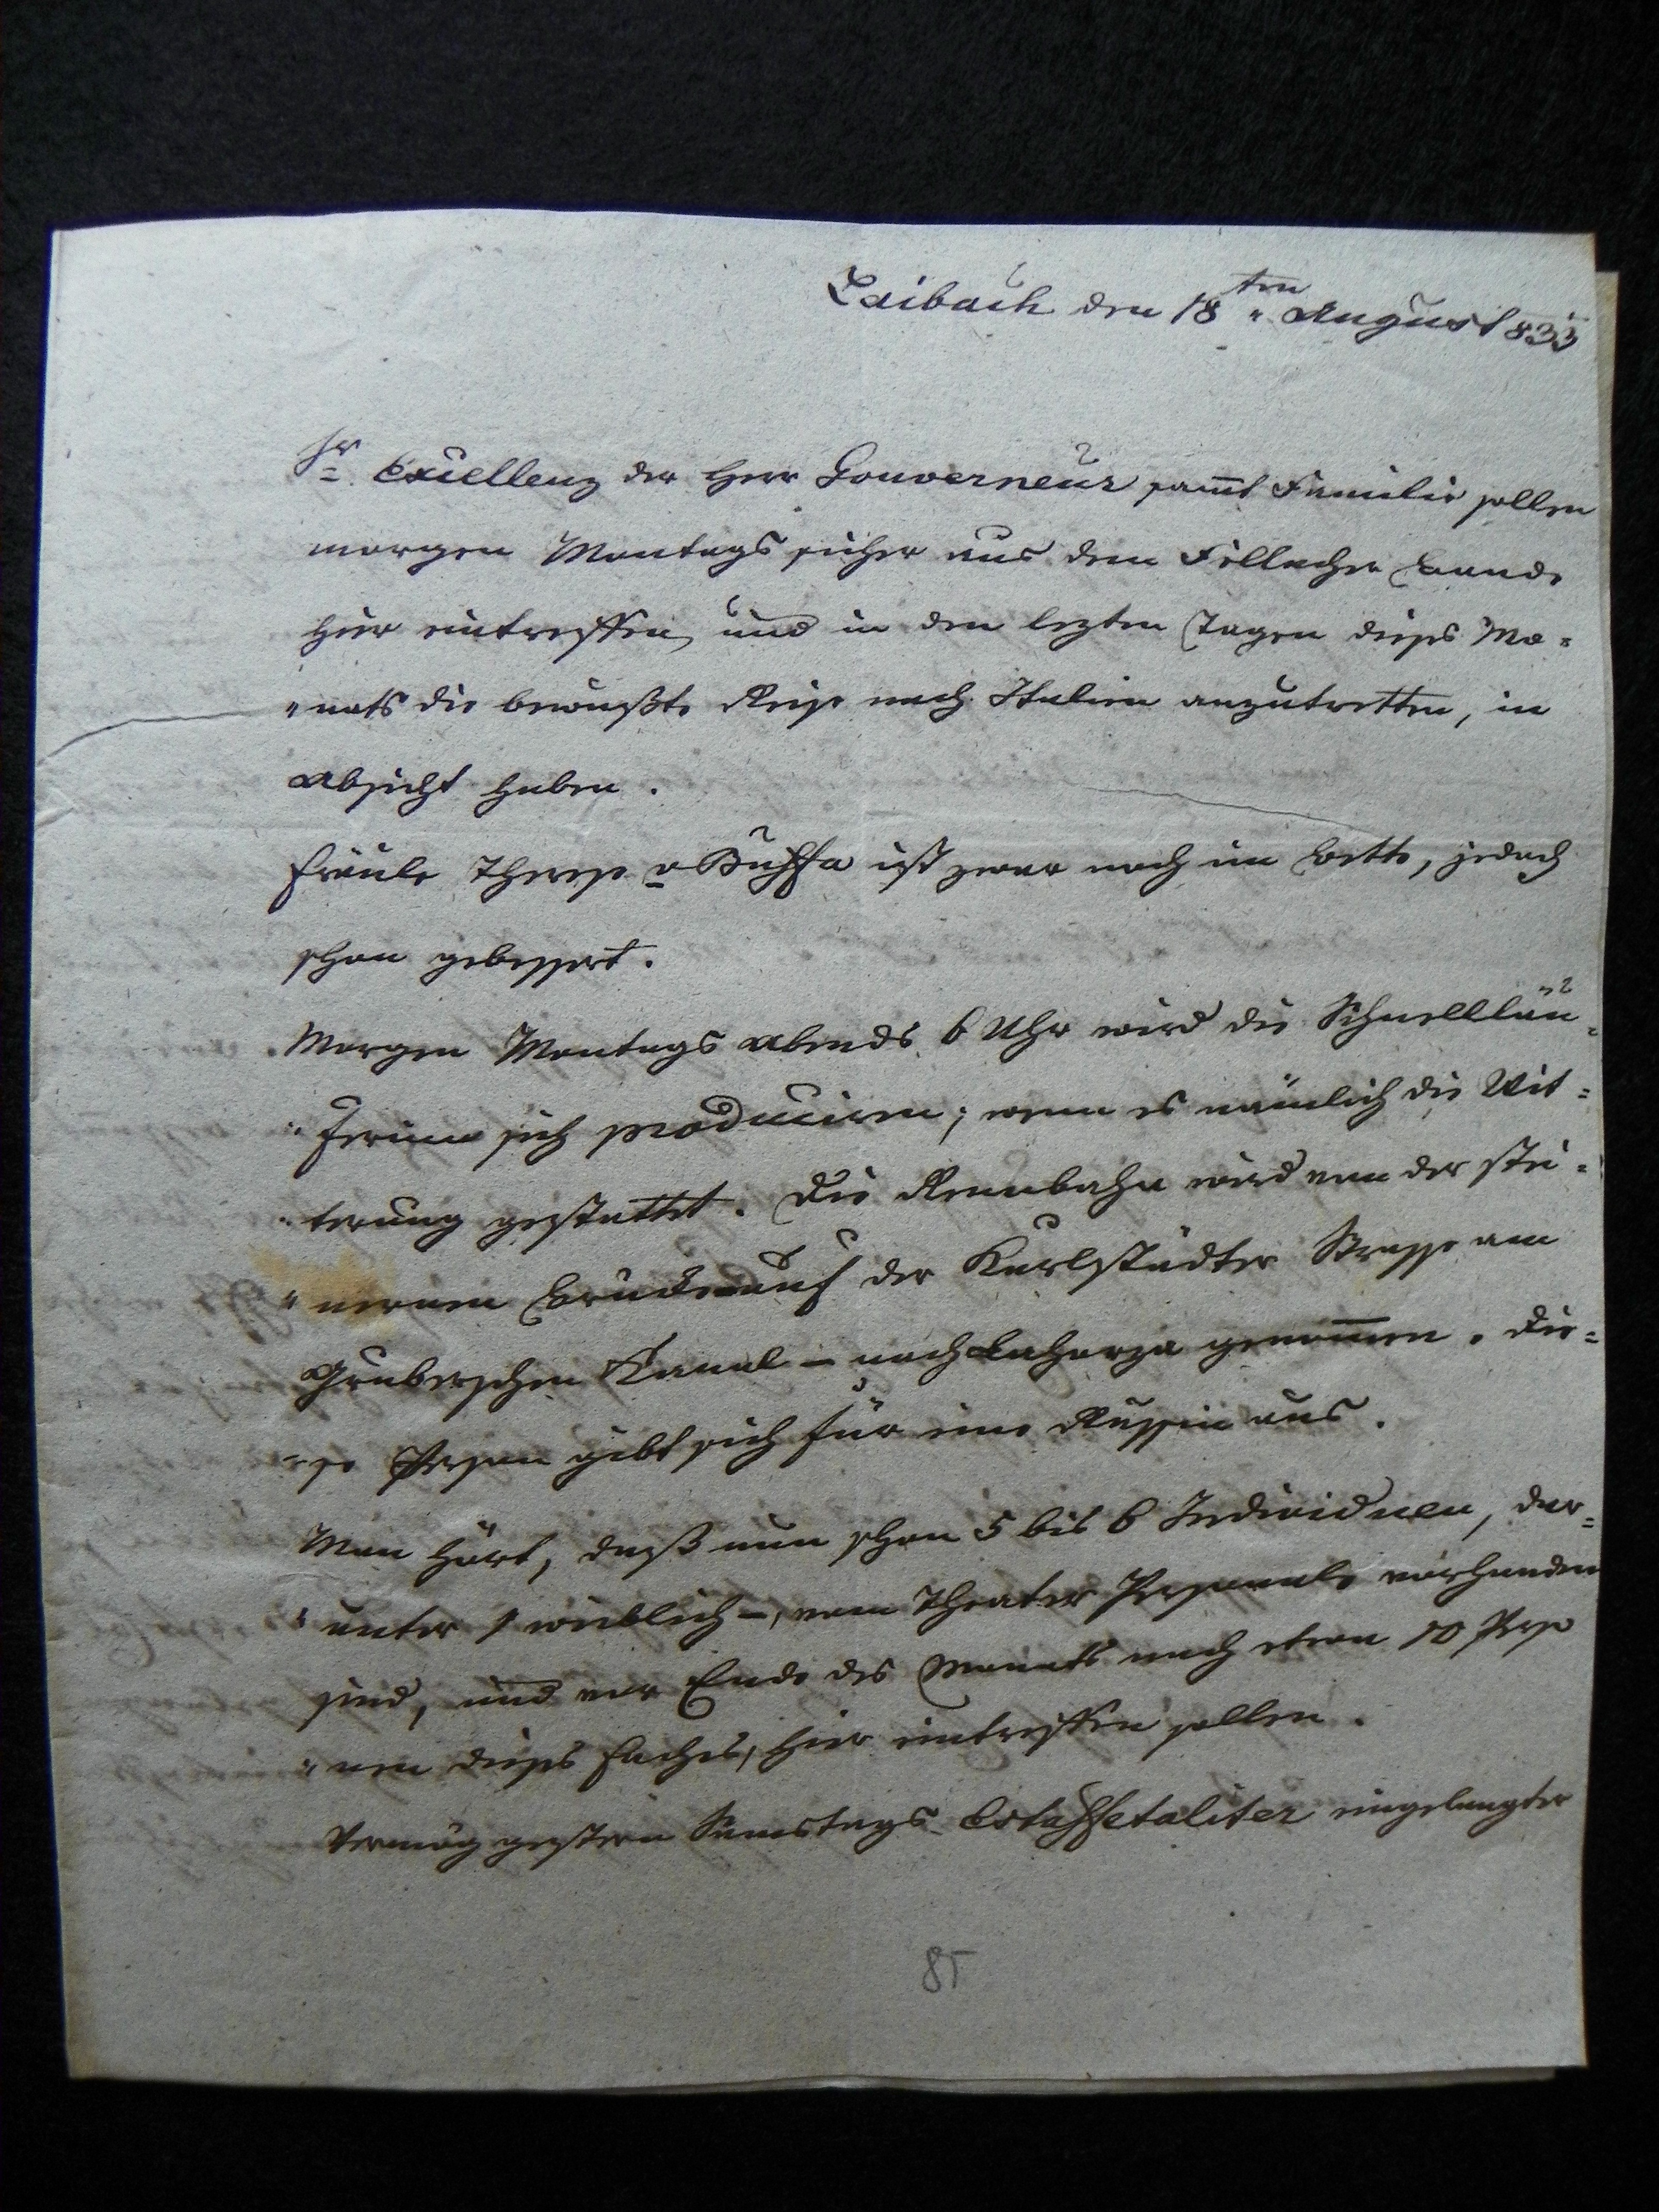 Laibach den 18ten August 833
Sr. Excellenz der Herr Gouverneur sammt Familie sollen
morgen Montags sicher aus dem Fellacher Baade
hier eintreffen, und in den lezten Tagen dieses Mo=
"nats die bewußte Reise nach Italien anzutretten, in
Absicht haben.
Fräule Therese v Buffa ist zwar noch im Bette, jedoch
schon gebessert.
Morgen Montags Abends 6 Uhr wird die Schnellläu=
"ferinn sich produciren; wenn es nämlich die Wit=
"terung gestattet. Die Rennbahn wird von der stei=
"nernen Brucke auf der Karlstädter Strasse am
Gruberschen Kanal – nach genommen. Die=
"se Person gibt sich für eine Russin aus.
Man hört, daß nun schon 5 bis 6 Individuen, dar=
"unter 1 weiblich –, vom Theater Personale vorhanden
sind, und vor Ende des Monats noch etwa 10 Perso
"nen dieses Faches, hier eintreffen sollen.
Vermög gestern Samstags Estaffetaliter eingelangter
85